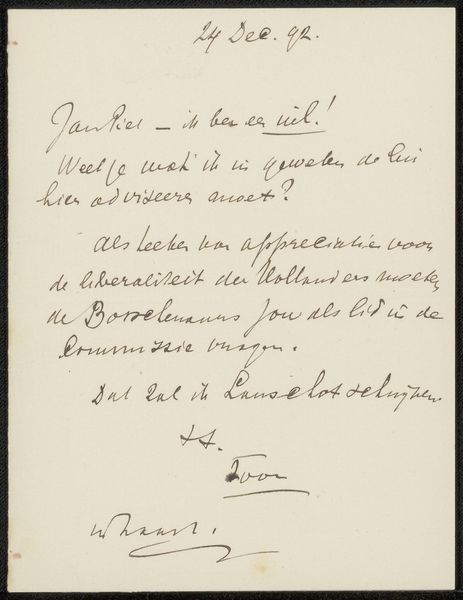 24 Dec. 92.
Jan Piet – ik ben er uit!
Weet je wat ik in geweten de lui
hier adviseeren moet?
Als teeken van appreciatie voor
de liberaliteit der Hollanders moeten
de Bosschenaars jou als lid in de
Commissie vragen.
Dat zal ik Lanschot schrijven.
tt.
Toon
in haast.